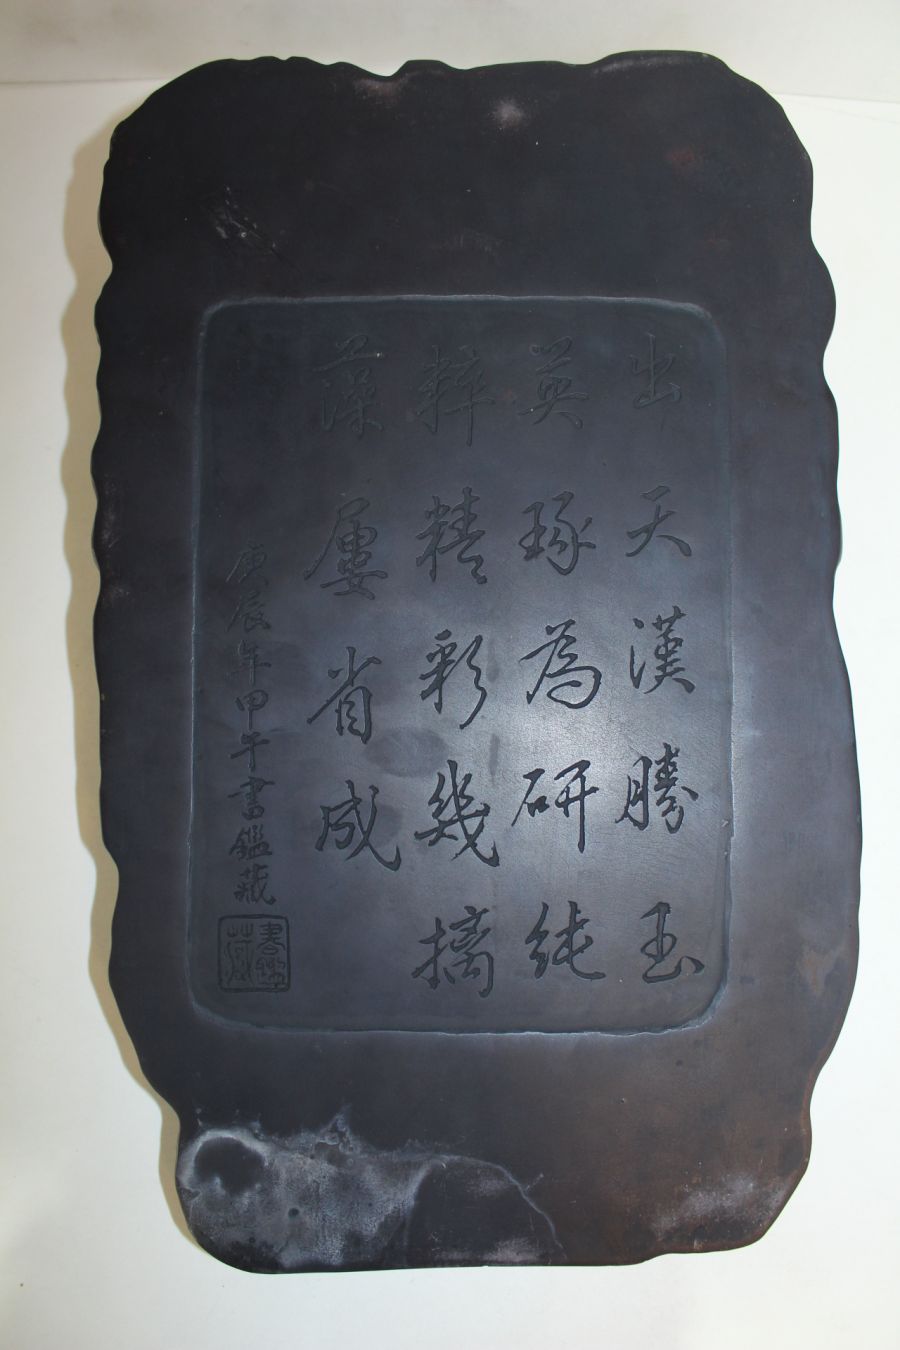 出天漢勝玉
英琢為研純
粹精彩幾摛
藻屢省成
庚辰年甲午書鑑藏
書鑑